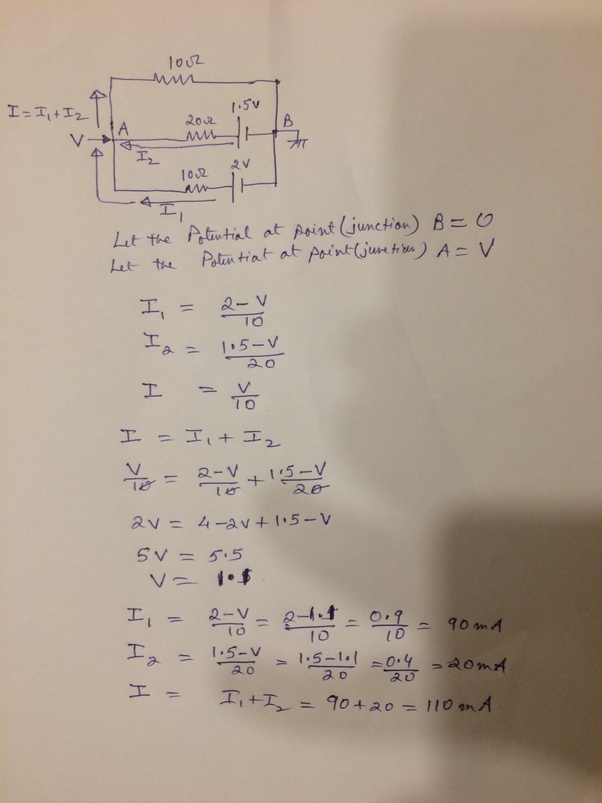 10Ω
I = I₁ + I₂
1.5V
V
A
20Ω
B
I₂
10Ω
2V
I₁
Let the Potential at point (junction) B = 0
Let the Potential at point (junction) A = V
I₁ = 2-V / 10
I₂ = 1.5-V / 20
I = V / 10
I = I₁ + I₂
V / 10 = 2-V / 10 + 1.5-V / 20
2V = 4-2V+1.5-V
5V = 5.5
V = 1.1
I₁ = 2-V / 10 = 2-1.1 / 10 = 0.9 / 10 = 90mA
I₂ = 1.5-V / 20 = 1.5-1.1 / 20 = 0.4 / 20 = 20mA
I = I₁+I₂ = 90+20 = 110mA